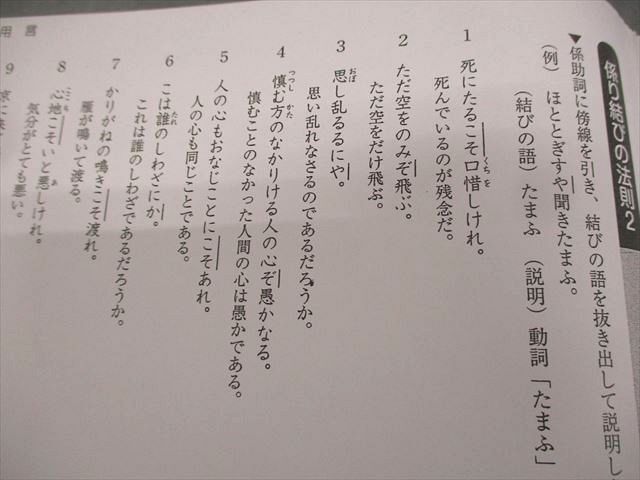 係り結びの法則2
▼係助詞に傍線を引き、結びの語を抜き出して説明し
(例) ほととぎすや聞きたまふ。
(結びの語) たまふ (説明) 動詞「たまふ」
1 死にたるこそ口惜しけれ。
くちを
死んでいるのが残念だ。
2 ただ空をのみぞ飛ぶ。
ただ空をだけ飛ぶ。
3 思し乱るるにや。
おぼ
思い乱れなさるのであるだろうか。
4 慎む方のなかりける人の心ぞ愚かなる。
つつし かた
慎むことのなかった人間の心は愚かである。
5 人の心もおなじことにこそあれ。
人の心も同じことである。
6 こは誰のしわざにか。
たれ
これは誰のしわざであるだろうか。
7 かりがねの鳴きこそ渡れ。
雁が鳴いて渡る。
8 心地こそいと悪しけれ。
ここち あ
気分がとても悪い。
9 京に
用言